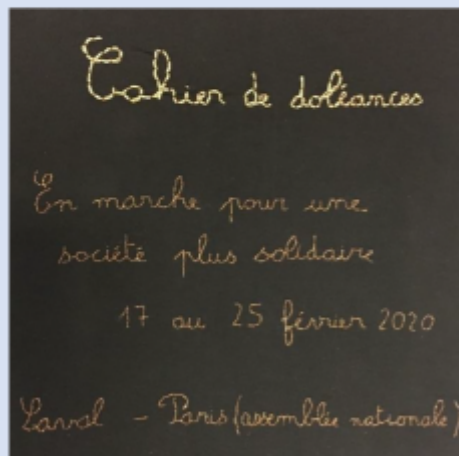 Cahier de doléances
En marche pour une
société plus solidaire
17 au 25 février 2020
Laval - Paris (assemblée nationale)